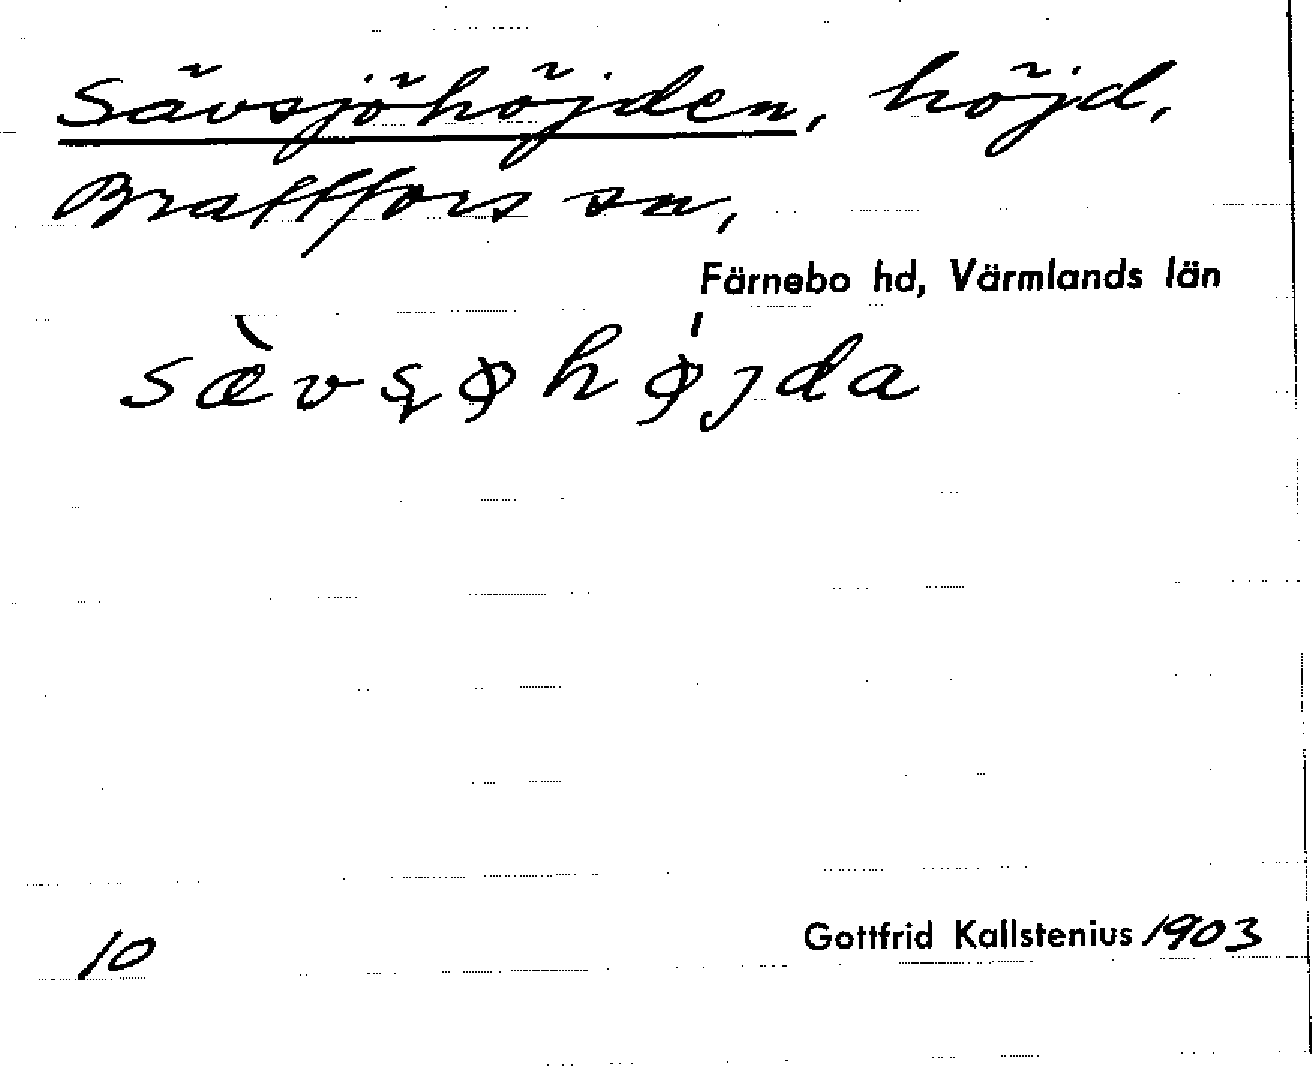 Sävsjöhöjden, höjd,
Brattfors sn,
Färnebo hd, Värmlands län
sæ̀vʂøhø̍jda
10
Gottfrid Kallstenius 1903